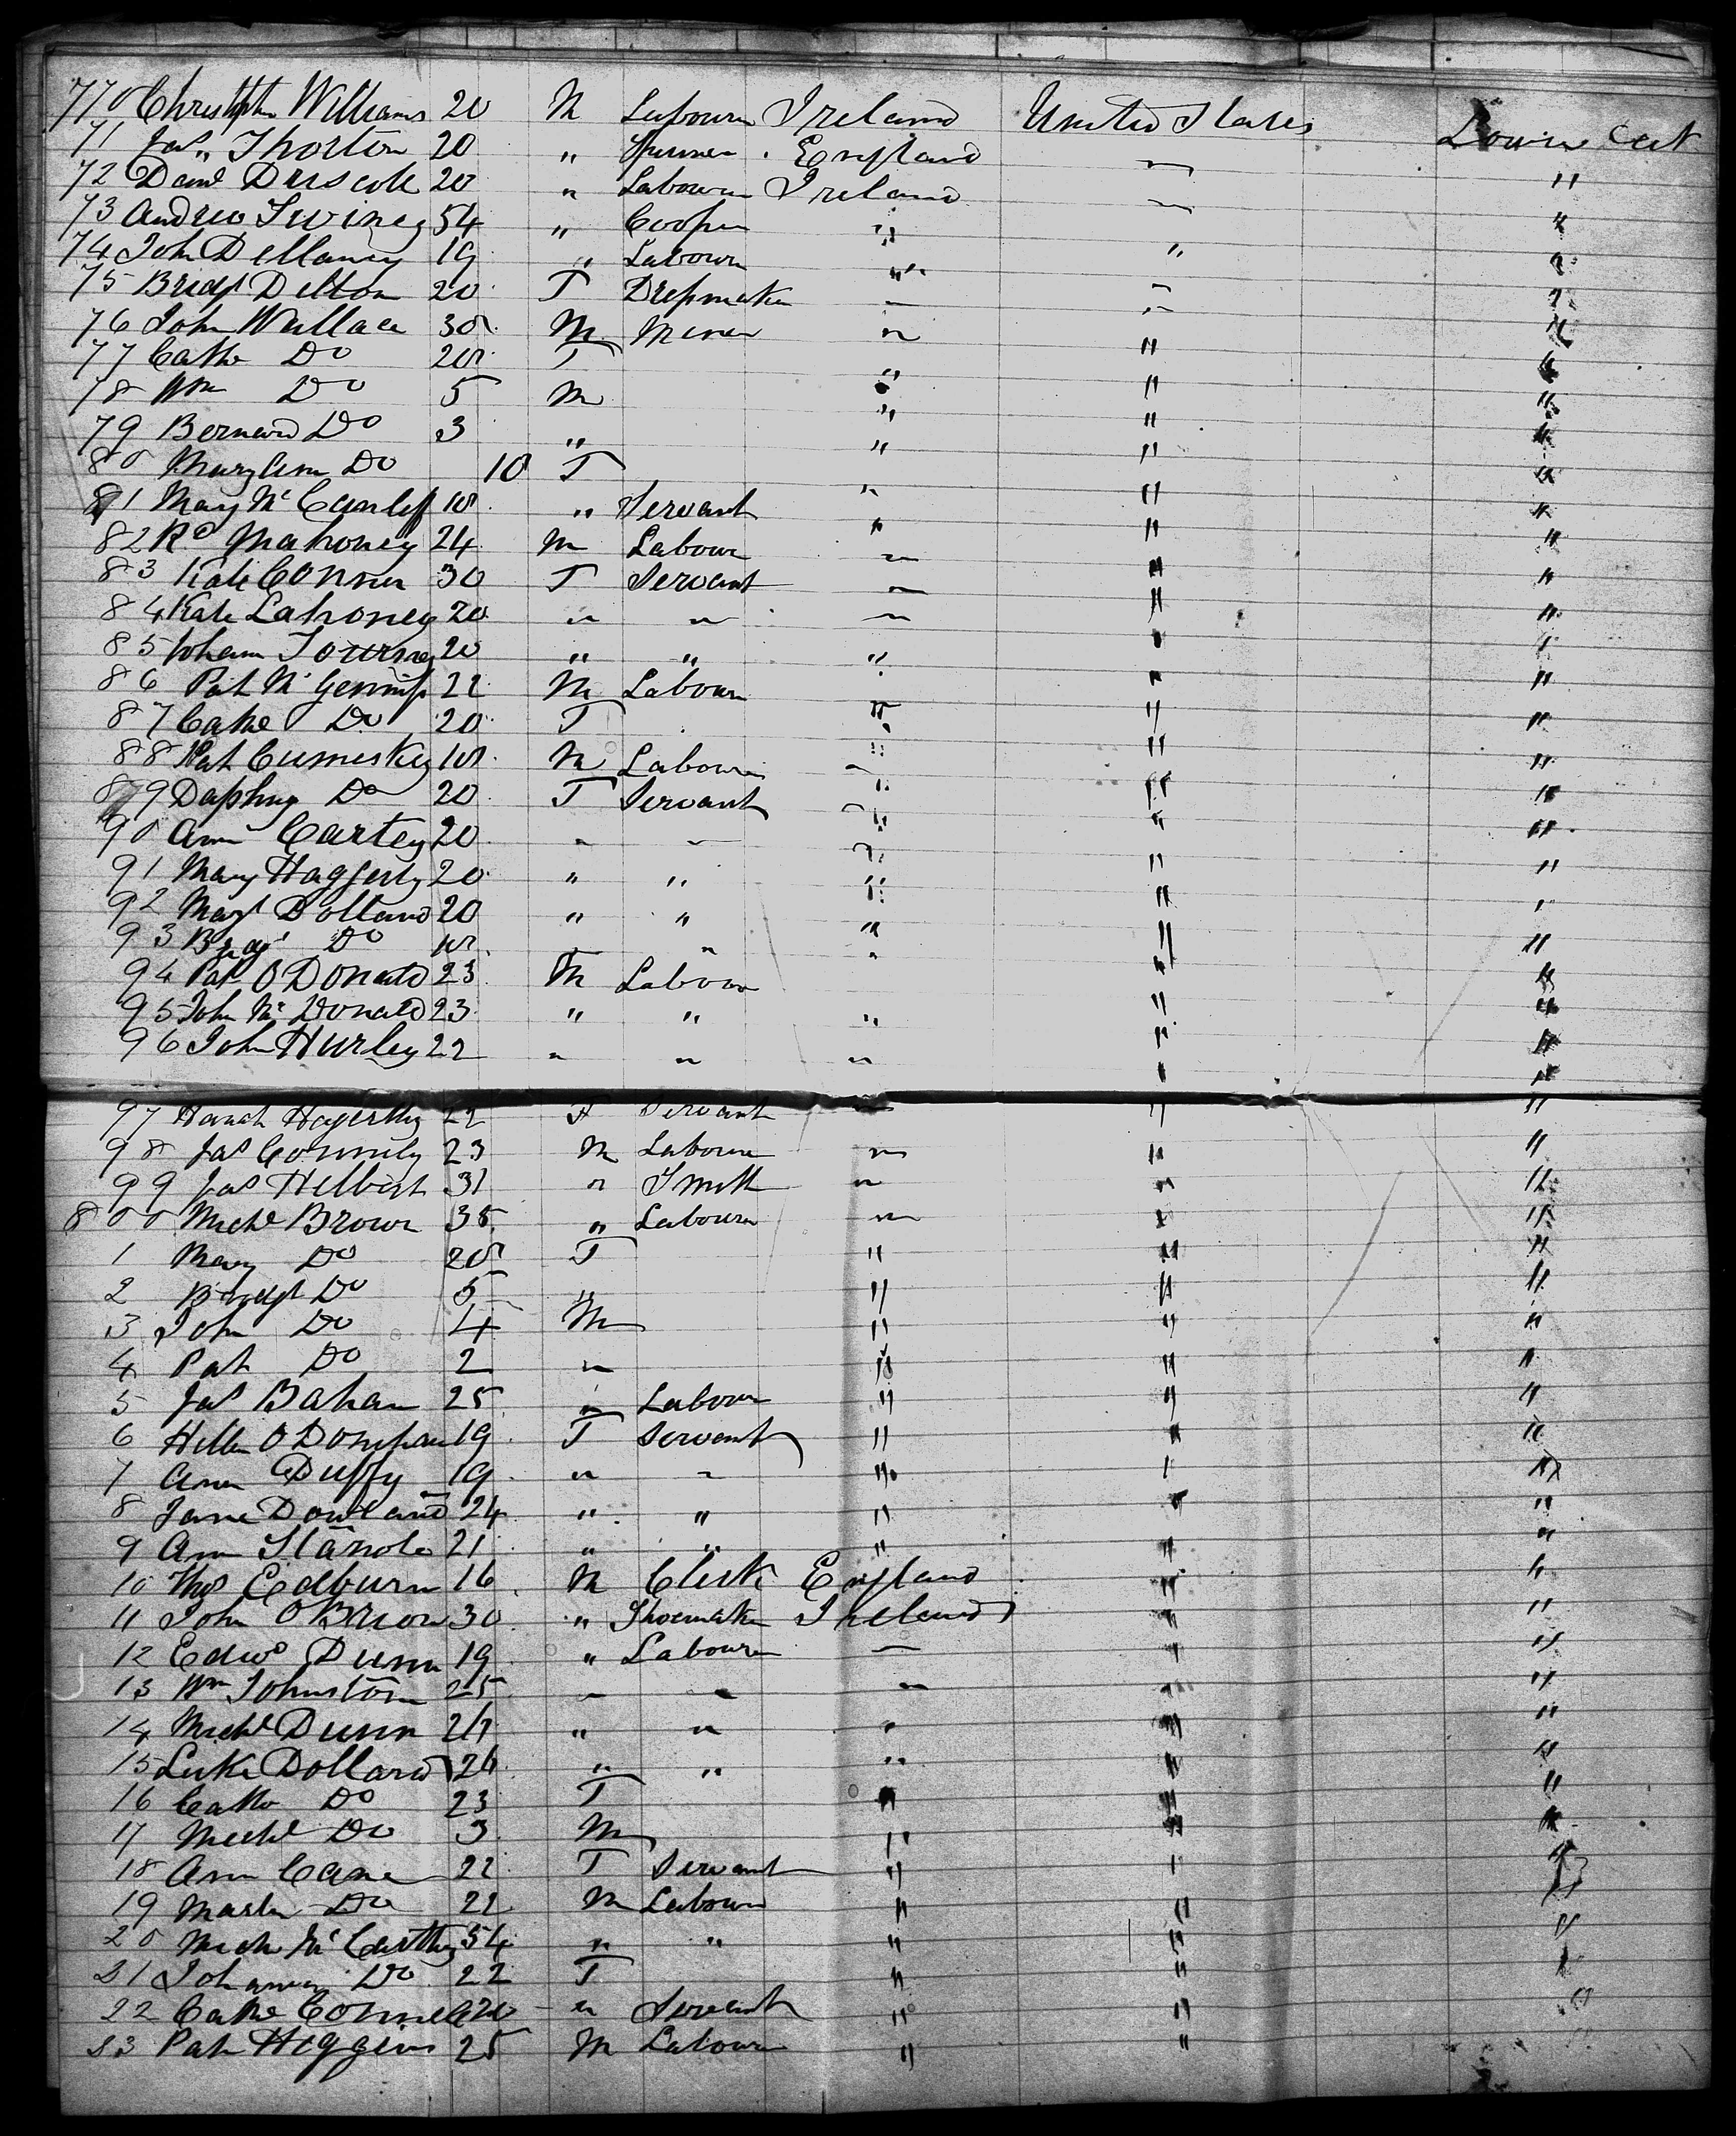 770 Christphr Williams 20 M Labourer Ireland United States Lower Deck
71 Jas " Thorton 20 " Spinner England " "
72 Danl Driscoll 20 " Labourer Ireland " "
73 Andrew Swiney 54 " Cooper " " "
74 John Dellaney 19 " Labourer " " "
75 Bridgt Delton 20 F Dressmaker " " "
76 John Wallace 30 M Miner " " "
77 Cathe Do 20 F " " "
78 Wm Do 5 M " " "
79 Bernard Do 3 " " " "
80 Mary Ann Do 10 F " " "
81 Mary Mc 18 " Servant " " "
82 Rd Mahoney 24 M Labour " " "
83 Kate Connor 30 F Servant " " "
84 Kate Lahoney 20 " " " " "
85 Johann 20 " " " " "
86 Pat Mc 22 M Labour " " "
87 Cathe Do 20 F " " "
88 Pat Cumiskey 18 M Labourer " " "
89 Daphny Do 20 F Servant " " "
90 Ann Cartey 20 " " " " "
91 Mary Haggerty 20 " " " " "
92 Margt Bolland 20 " " " " "
93 Bridgt Do 18 " " " "
94 Pat O Donald 23 M Labour " "
95 John Mc Donald 23 " " " " "
96 John Hurley 22 " " " " "
97 Hanah Hagerthy 22 F Servant " " "
98 Jas Connily 23 M Labourer " " "
99 Jas Helbert 31 " Smith " " "
800 Michl Brown 35 " Labourer " " "
1 Mary Do 20 F " " "
2 Bridgt Do 5 " " " "
3 John Do 4 M " " "
4 Pat Do 2 " " " "
5 Jas Bahan 25 " Labour " " "
6 Hellen O Donohan 19 F Servant " " "
7 Ann Duffy 19 " " " " "
8 Jane Dowland 24 " " " " "
9 Ann 21 " " " " "
10 Thos Edburn 16 M Clerk England " "
11 John O Brion 30 " Shoemaker Ireland " "
12 Edwd Dunn 19 " Labourer " " "
13 Wm Johnston 25 " " " " "
14 Michl Dunn 27 " " " " "
15 Luke Dollard 26 " " " " "
16 Cathe Do 23 F " " "
17 Michl Do 3 M " " "
18 Ann Cane 22 F Servant " " "
19 Martin Do 22 M Labour " " "
20 Mich Mc Carthy 34 " " " " "
21 Johanna Do 22 F " " "
22 Cathe Connell 20 " Servant " " "
23 Pat Higgins 25 M Labour " " "